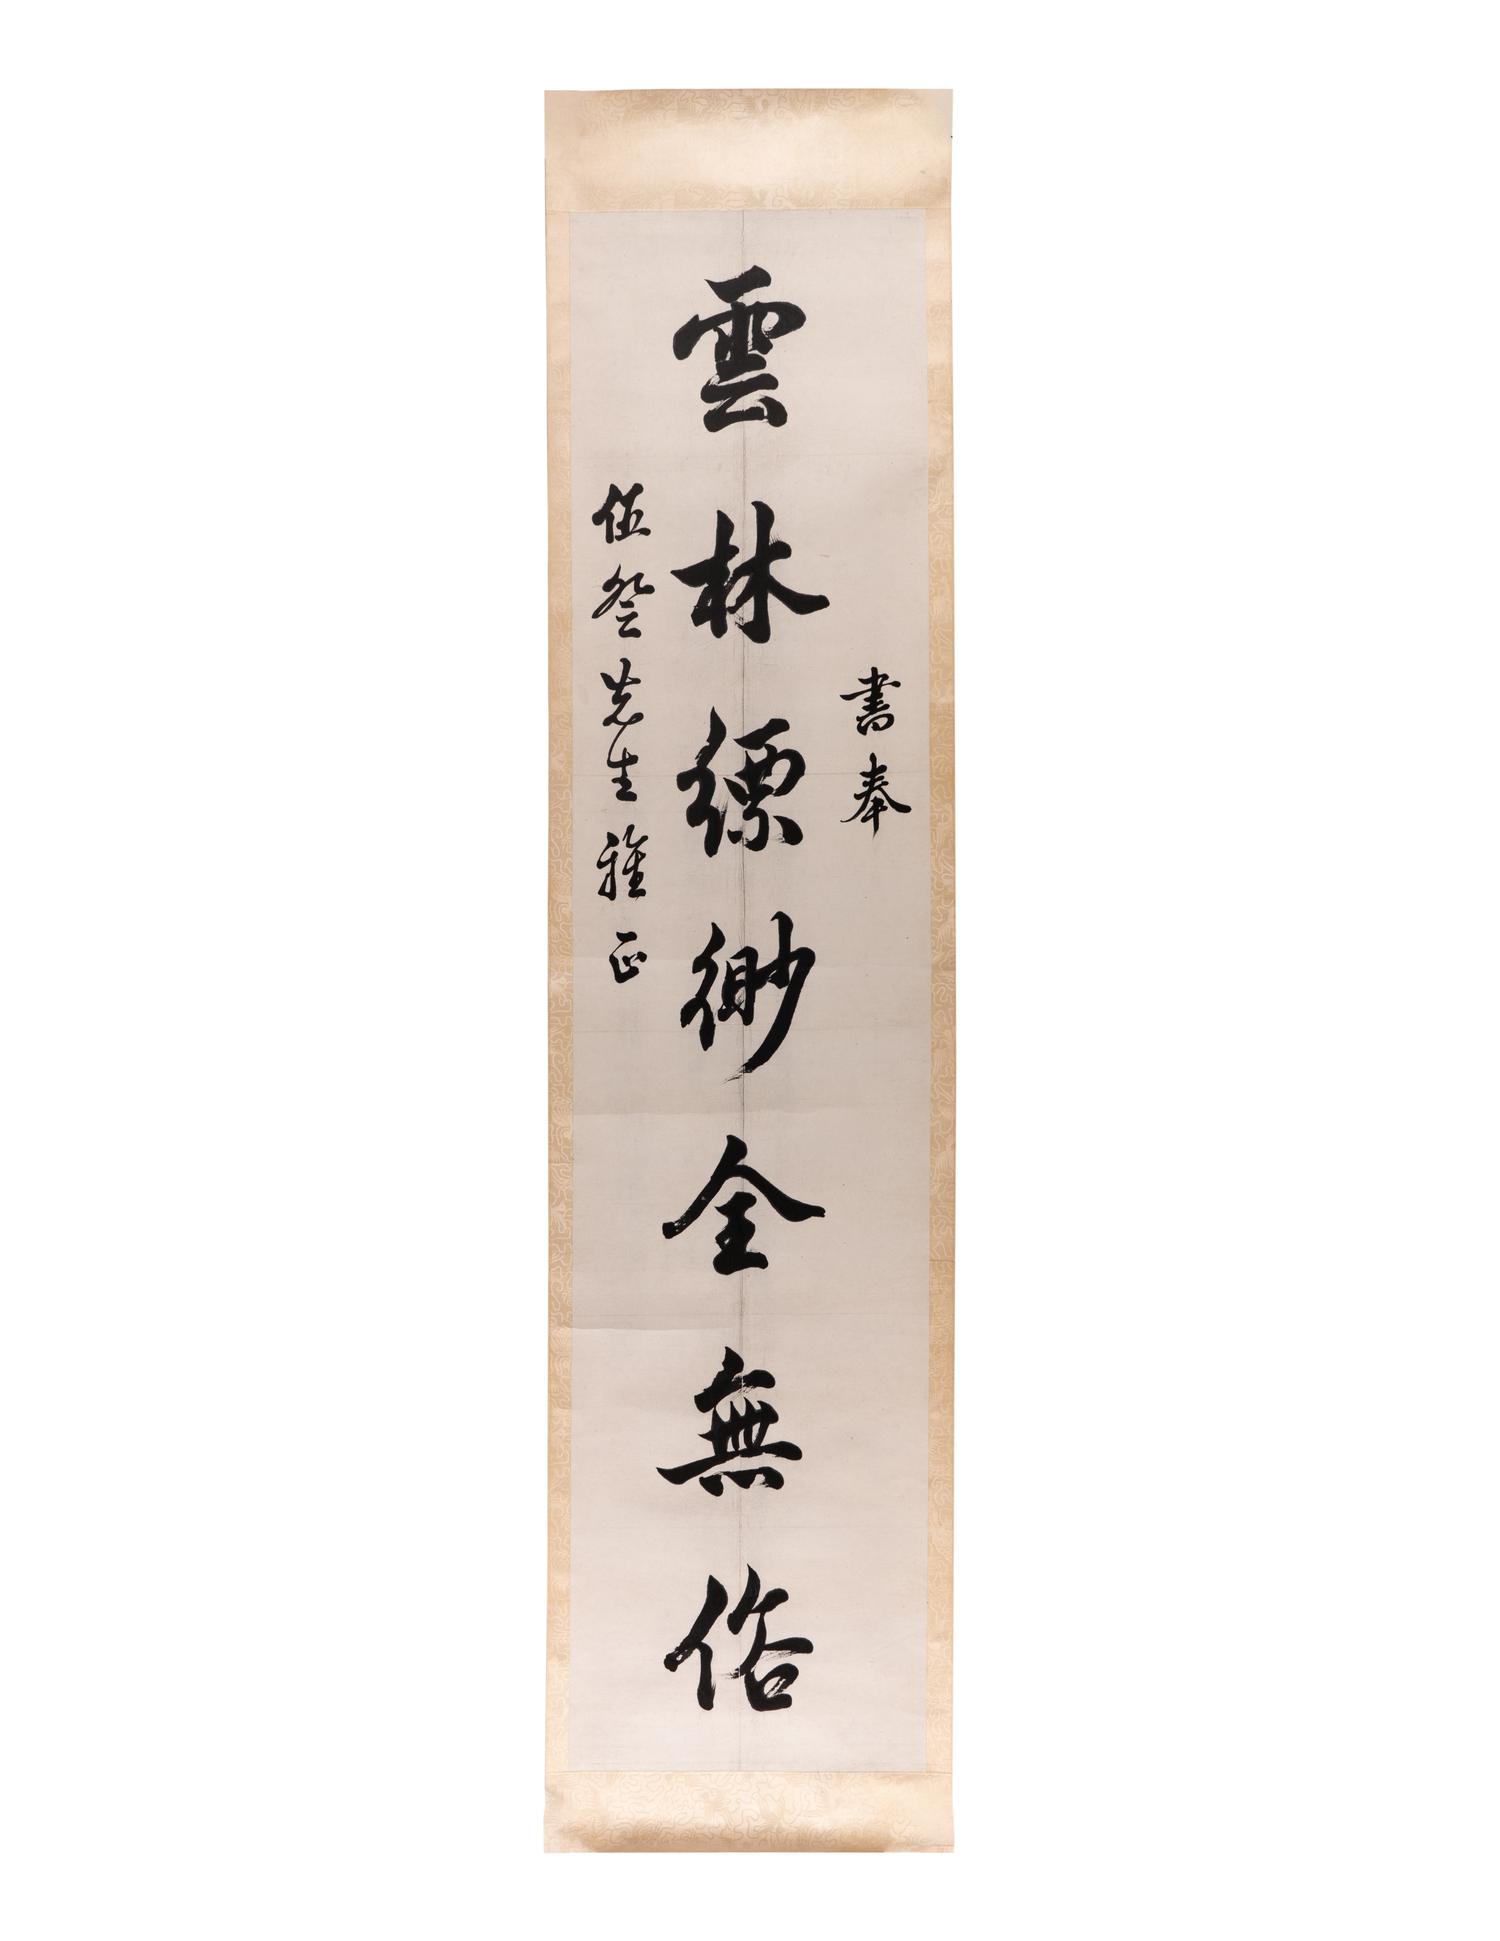 書奉
雲林縹緲全無俗
伍 先生雅正